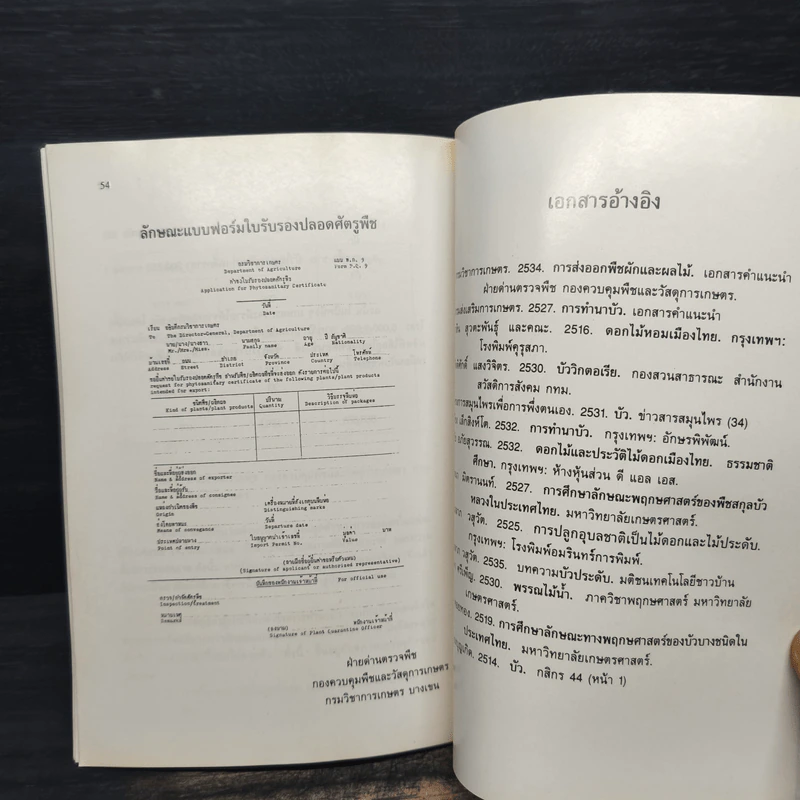 54
ลักษณะแบบฟอร์มใบรับรองปลอดศัตรูพืช
กรมวิชาการเกษตร
Department of Agriculture
แบบ พ.ก. 9
Form P.Q. 9
คำขอใบรับรองปลอดศัตรูพืช
Application for Phytosanitary Certificate
วันที่
Date
เรียน อธิบดีกรมวิชาการเกษตร
To The Director-General, Department of Agriculture
นาย/นาง/นางสาว นามสกุล อายุ ปี สัญชาติ
Mr./Mrs./Miss. Family name Age Nationality
บ้านเลขที่ ถนน อำเภอ จังหวัด ประเทศ โทรศัพท์
Address Street District Province Country Telephone
request for phytosanitary certificate of the following plants/plant products
intended for export:
ชนิดพืช/ผลิตผล ปริมาณ วิธีบรรจุหีบห่อ
Kind of plants/plant products Quantity Description of packages
ชื่อและที่อยู่ผู้ส่งออก
Name & Address of exporter
ชื่อและที่อยู่ผู้รับ
Name & address of consignee
แหล่งกำเนิดของพืช
Origin Distinguishing marks
วันที่
Means of conveyance Departure date
ประเทศปลายทาง ใบอนุญาตนำเข้าเลขที่ มูลค่า บาท
Point of entry Import Permit No. Value
(Signature of applicant or authorized representative)
บันทึกของพนักงานเจ้าหน้าที่ For official use
ตรวจ/กำจัดศัตรูพืช
Inspection/Treatment
หมายเหตุ
Remark
(ลงนาม) พนักงานเจ้าหน้าที่
Signature of Plant Quarantine Officer
ฝ่ายด่านตรวจพืช
กองควบคุมพืชและวัสดุการเกษตร
กรมวิชาการเกษตร บางเขน
เอกสารอ้างอิง
กรมวิชาการเกษตร. 2534. การส่งออกพืชผักและผลไม้. เอกสารคำแนะนำ
ฝ่ายด่านตรวจพืช กองควบคุมพืชและวัสดุการเกษตร.
ส่งเสริมการเกษตร. 2527. การทำนาบัว. เอกสารคำแนะนำ
สุวตะพันธุ์ และคณะ. 2516. ดอกไม้หอมเมืองไทย. กรุงเทพฯ:
โรงพิมพ์คุรุสภา.
แสงวิจิตร. 2530. บัววิกตอเรีย. กองสวนสาธารณะ สำนักงาน
สวัสดิการสังคม กทม.
สมุนไพรเพื่อการพึ่งตนเอง. 2531. บัว. ข่าวสารสมุนไพร (34)
เล็กสิงห์โต. 2532. การทำนาบัว. กรุงเทพฯ: อักษรพิพัฒน์.
อภัยสุวรรณ. 2532. ดอกไม้และประวัติไม้ดอกเมืองไทย. ธรรมชาติ
ศึกษา. กรุงเทพฯ: ห้างหุ้นส่วน ดี แอล เอส.
มิตรานนท์. 2527. การศึกษาลักษณะพฤกษศาสตร์ของพืชสกุลบัว
หลวงในประเทศไทย. มหาวิทยาลัยเกษตรศาสตร์.
วสุวัต. 2525. การปลูกอุบลชาติเป็นไม้ดอกและไม้ประดับ.
กรุงเทพฯ: โรงพิมพ์อมรินทร์การพิมพ์.
วสุวัต. 2535. บทความบัวประดับ. มติชนเทคโนโลยีชาวบ้าน
2530. พรรณไม้น้ำ. ภาควิชาพฤกษศาสตร์ มหาวิทยาลัย
เกษตรศาสตร์.
2519. การศึกษาลักษณะทางพฤกษศาสตร์ของบัวบางชนิดใน
ประเทศไทย. มหาวิทยาลัยเกษตรศาสตร์.
2514. บัว. กสิกร 44 (หน้า 1)